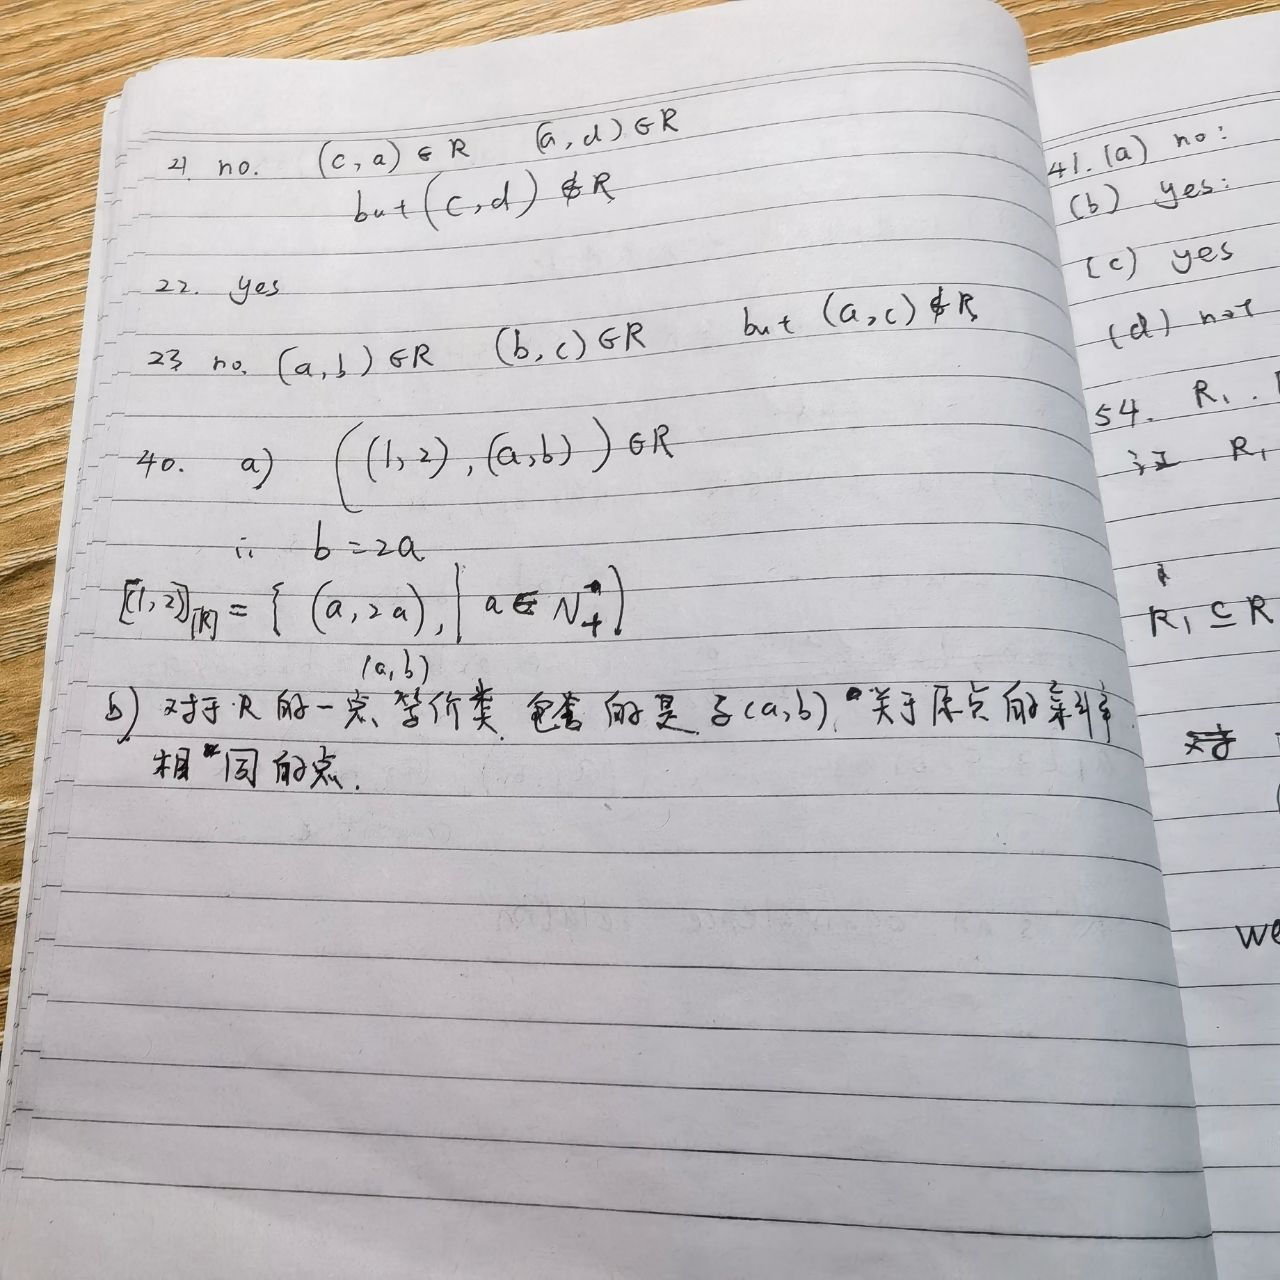 21 no. (c, a) ∈ R (a, d) ∈ R
but (c, d) ∉ R
22. yes
23 no. (a, b) ∈ R (b, c) ∈ R but (a, c) ∉ R
40. a) ((1, 2), (a, b)) ∈ R
∴ b = 2a
[(1, 2)][R] = { (a, 2a), | a ∈ N+ }
(a, b)
b) 对于 R 的一点 等价类 包含 的是 与(a, b) 关于原点的斜率
相 同的点.
41. (a) no:
(b) yes:
(c) yes
(d) not
54. R₁.
证 R₁
R₁ ⊆ R
we